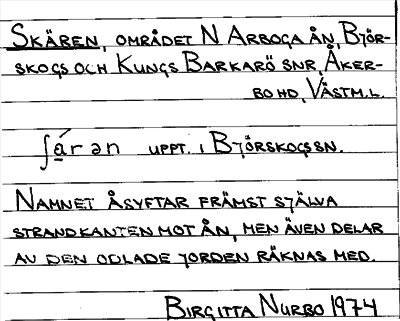 SKÄREN, OMRÅDET N ARBOGA ÅN, BJÖR-
SKOGS OCH KUNGS BARKARÖ SNR, ÅKER-
BO HD, VÄSTM.L.
ʃá̱rən UPPT. I BJÖRSKOGS SN.
NAMNET ÅSYFTAR FRÄMST SJÄLVA
STRANDKANTEN MOT ÅN, MEN ÄVEN DELAR
AV DEN ODLADE JORDEN RÄKNAS MED.
BIRGITTA NURBO 1974